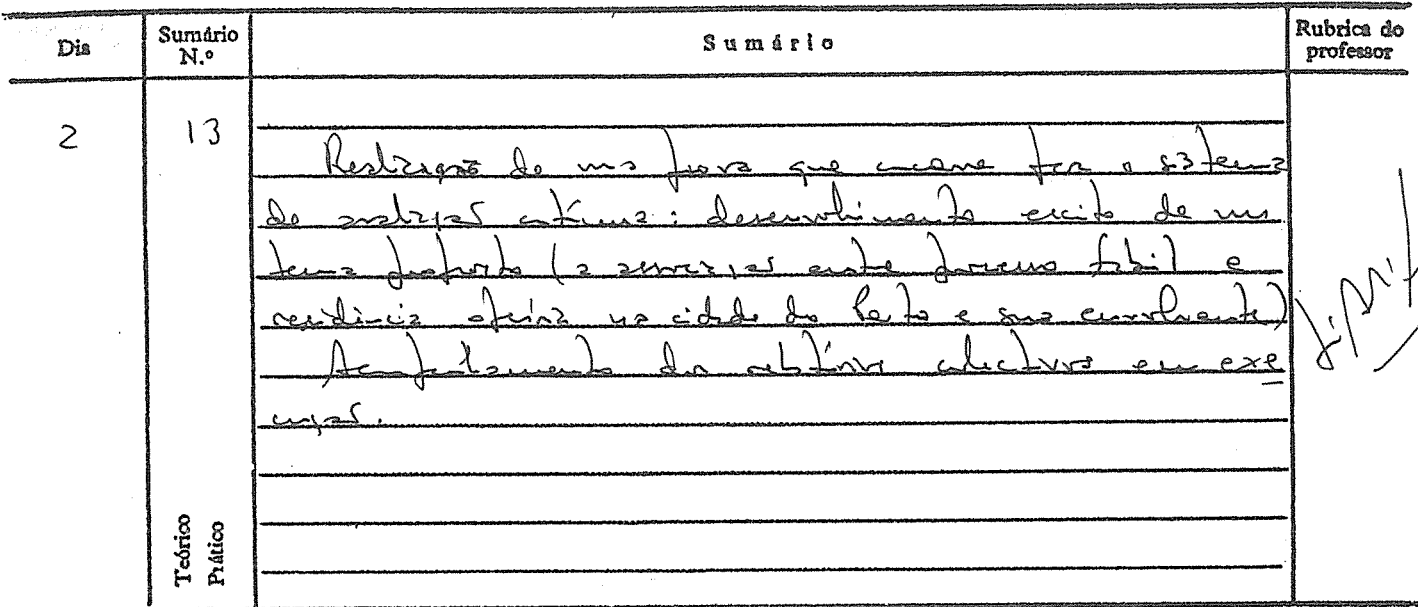 Dia
Sumário N.º
Sumário
Rubrica do professor
2
13
Realização de uma prova que encerra para o sistema
de avaliação contínua: desenvolvimento escrito de um
tema proposto (a associação entre processo fabril e
residência operária na cidade do Porto e sua envolvente)
Acompanhamento dos relatórios colectivos em exe
cução.
Teórico
Prático